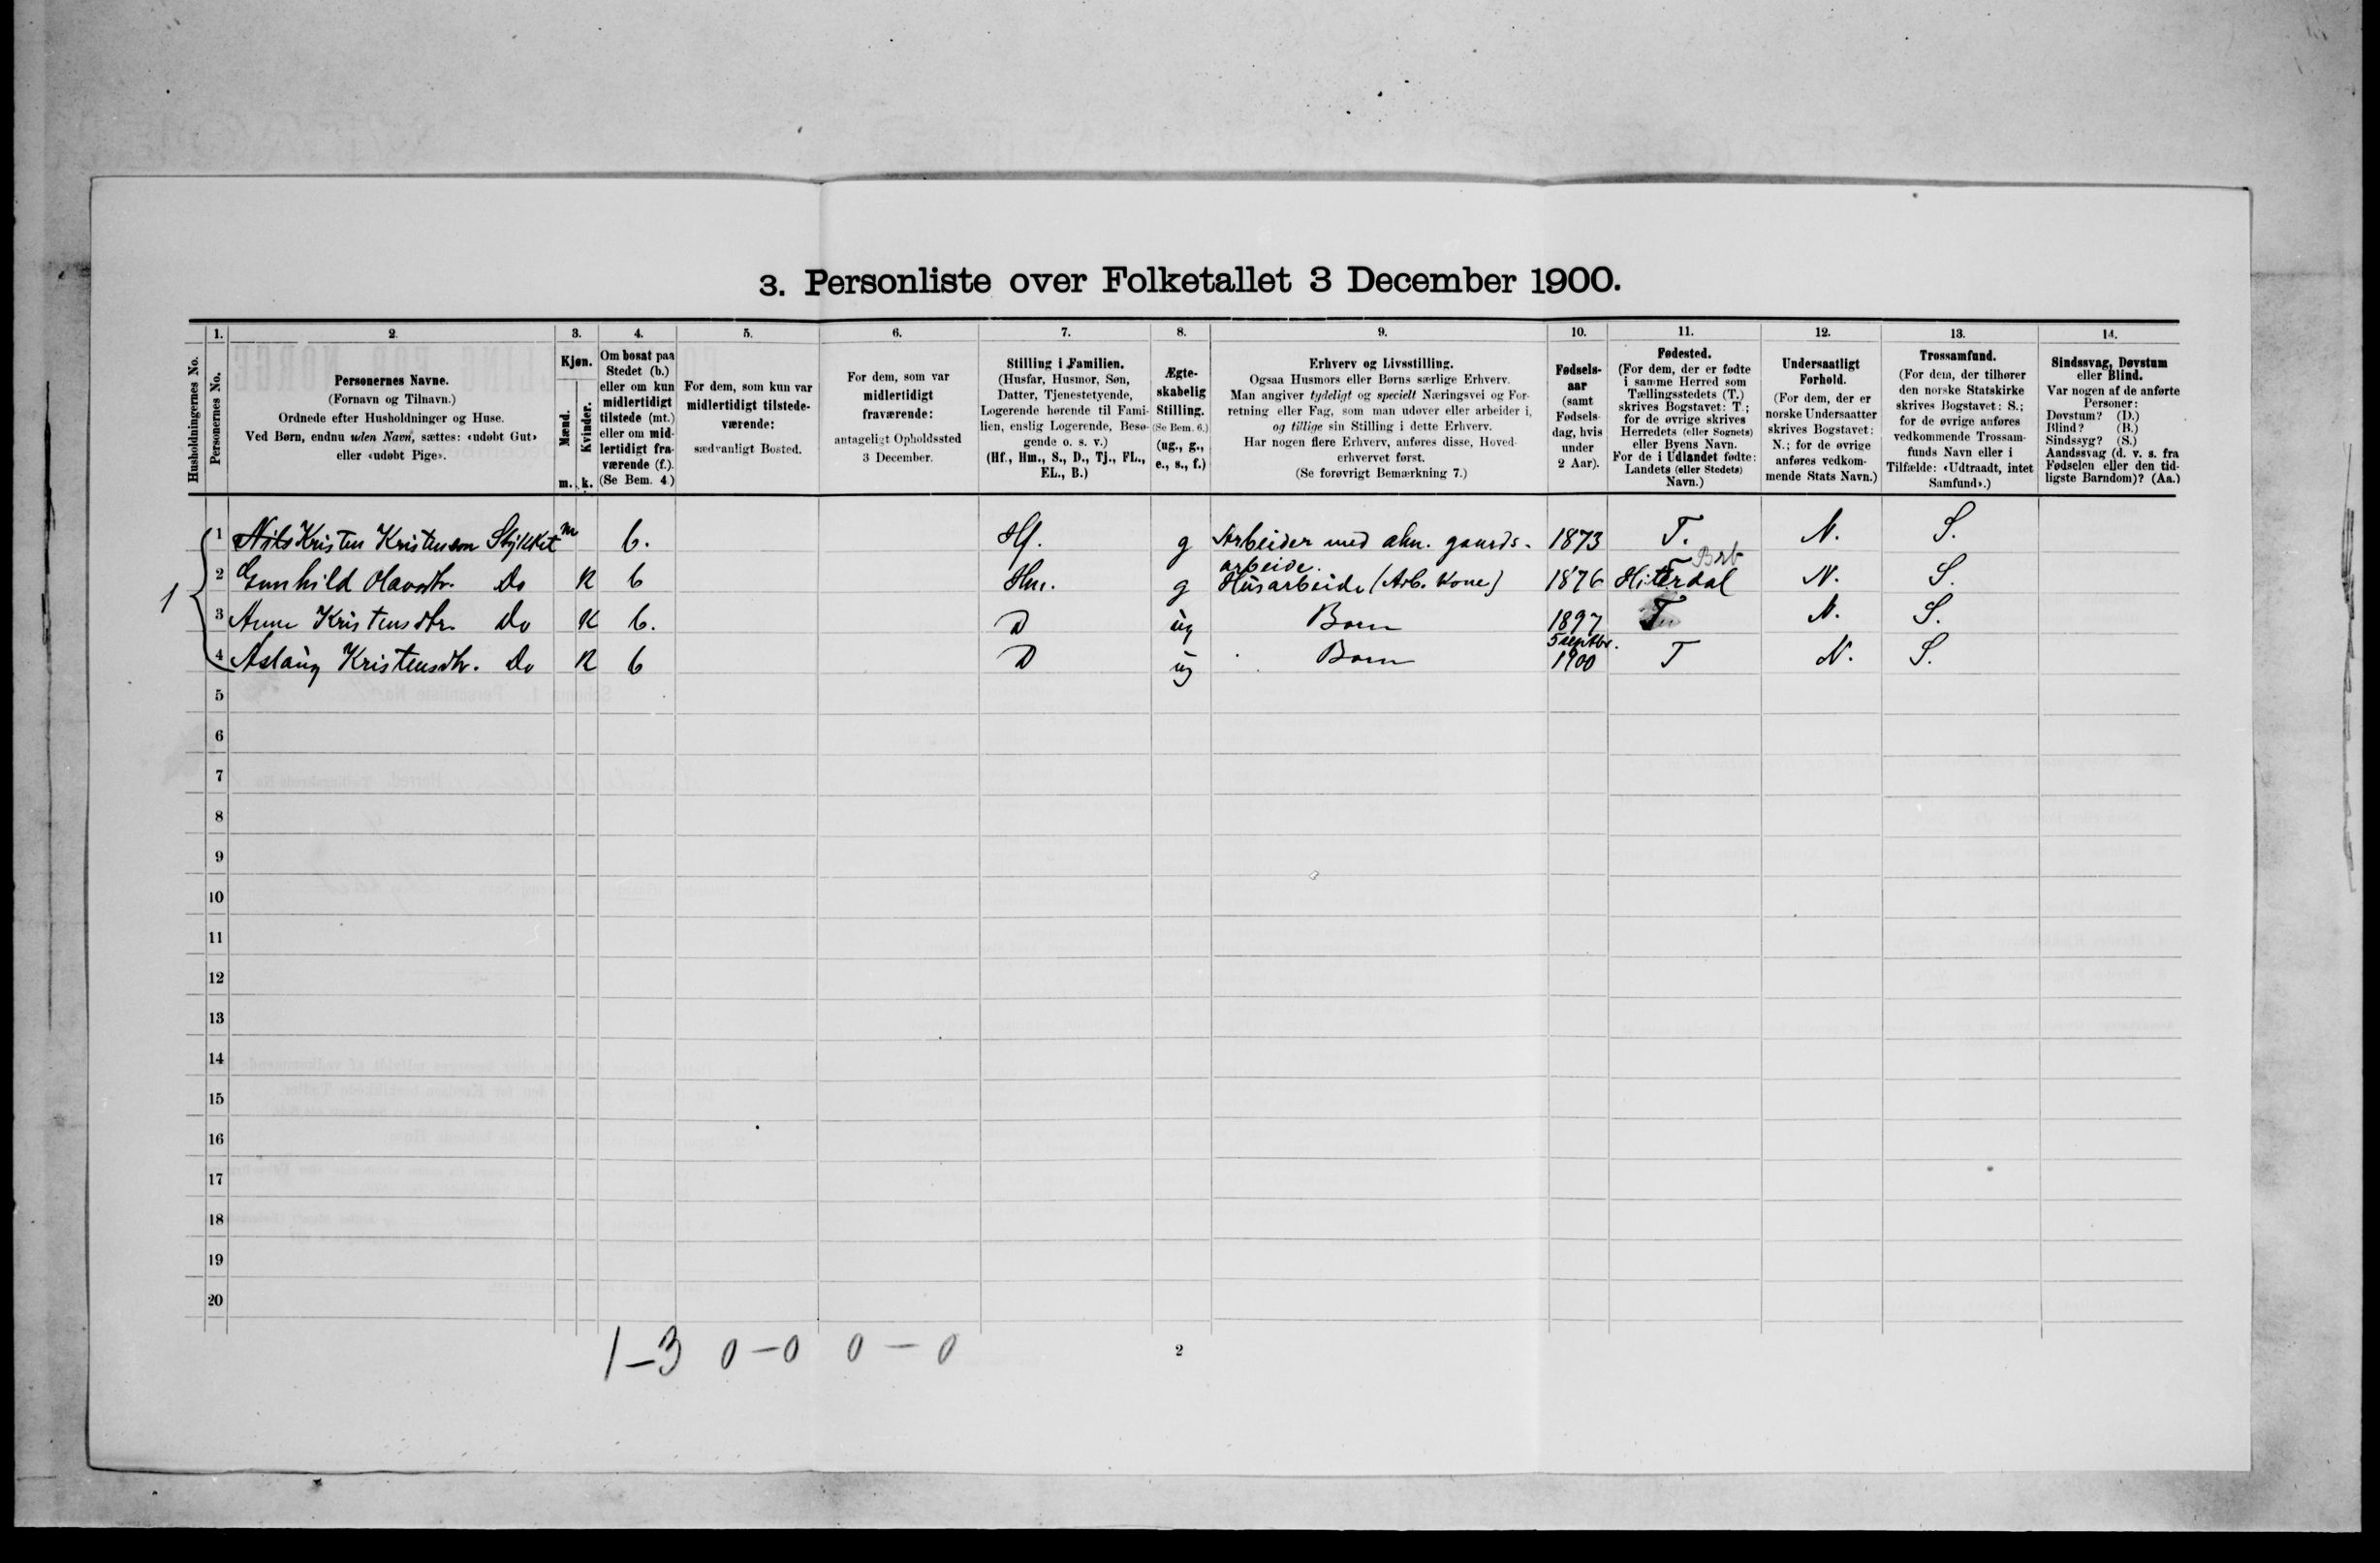 3. Personliste over Folketallet 3 December 1900.
Husholdningernes No.
1.
Personernes No.
2.
Personernes Navne.
(Fornavn og Tilnavn.)
Ordnede efter Husholdninger og Huse.
Ved Børn, endnu uden Navn, sættes: «udøbt Gut»
eller «udøbt Pige».
3.
Kjøn.
Mænd.
Kvinder.
m. k.
4.
Om bosat paa
Stedet (b.)
eller om kun
midlertidigt
tilstede (mt.)
eller om mid-
lertidigt fra-
værende (f.).
(Se Bem. 4.)
5.
For dem, som kun var
midlertidigt tilstede-
værende:
sædvanligt Bosted.
6.
For dem, som var
midlertidigt
fraværende:
antageligt Opholdssted
3 December.
7.
Stilling i Familien.
(Husfar, Husmor, Søn,
Datter, Tjenestetyende,
Logerende hørende til Fami-
lien, enslig Logerende, Besø-
gende o. s. v.)
(Hf., Hm., S., D., Tj., FL.,
EL., B.)
8.
Ægte-
skabelig
Stilling.
(Se Bem. 6.)
(ug., g.,
e., s., f.)
9.
Erhverv og Livsstilling.
Ogsaa Husmors eller Børns særlige Erhverv.
Man angiver tydeligt og specielt Næringsvei og For-
retning eller Fag, som man udøver eller arbeider i,
og tillige sin Stilling i dette Erhverv.
Har nogen flere Erhverv, anføres disse, Hoved-
erhvervet først.
(Se forøvrigt Bemærkning 7.)
10.
Fødsels-
aar
(samt
Fødsels-
dag, hvis
under
2 Aar).
11.
Fødested.
(For dem, der er fødte
i samme Herred som
Tællingsstedets (T.)
skrives Bogstavet: T.;
for de øvrige skrives
Herredets (eller Sognets)
eller Byens Navn.
For de i Udlandet fødte:
Landets (eller Stedets)
Navn.)
12.
Undersaatligt
Forhold.
(For dem, der er
norske Undersaatter
skrives Bogstavet:
N.; for de øvrige
anføres vedkom-
mende Stats Navn.)
13.
Trossamfund.
(For dem, der tilhører
den norske Statskirke
skrives Bogstavet: S.;
for de øvrige anføres
vedkommende Trossam-
funds Navn eller i
Tilfælde: «Udtraadt, intet
Samfund».)
14.
Sindssvag, Døvstum
eller Blind.
Var nogen af de anførte
Personer:
Døvstum? (D.)
Blind? (B.)
Sindssyg? (S.)
Aandssvag (d. v. s. fra
Fødselen eller den tid-
ligste Barndom)? (Aa.)
1
1 Nils Kristen Kristenson m b. Hf. g Arbeider med alm. gaards- 1873 T. N. S.
arbeide.
2 Gunhild Olavsdtr. Do K b Hm. g Husarbeide (Arb. Kone) 1876 Hiterdal N. S.
3 Anne Kristensdtr. Do K b. D ug Barn 1897 T N. S.
4 Aslaug Kristensdtr. Do K b D ug Barn 5 septbr. 1900 T N. S.
5
6
7
8
9
10
11
12
13
14
15
16
17
18
19
20
1-3 0-0 0-0
2